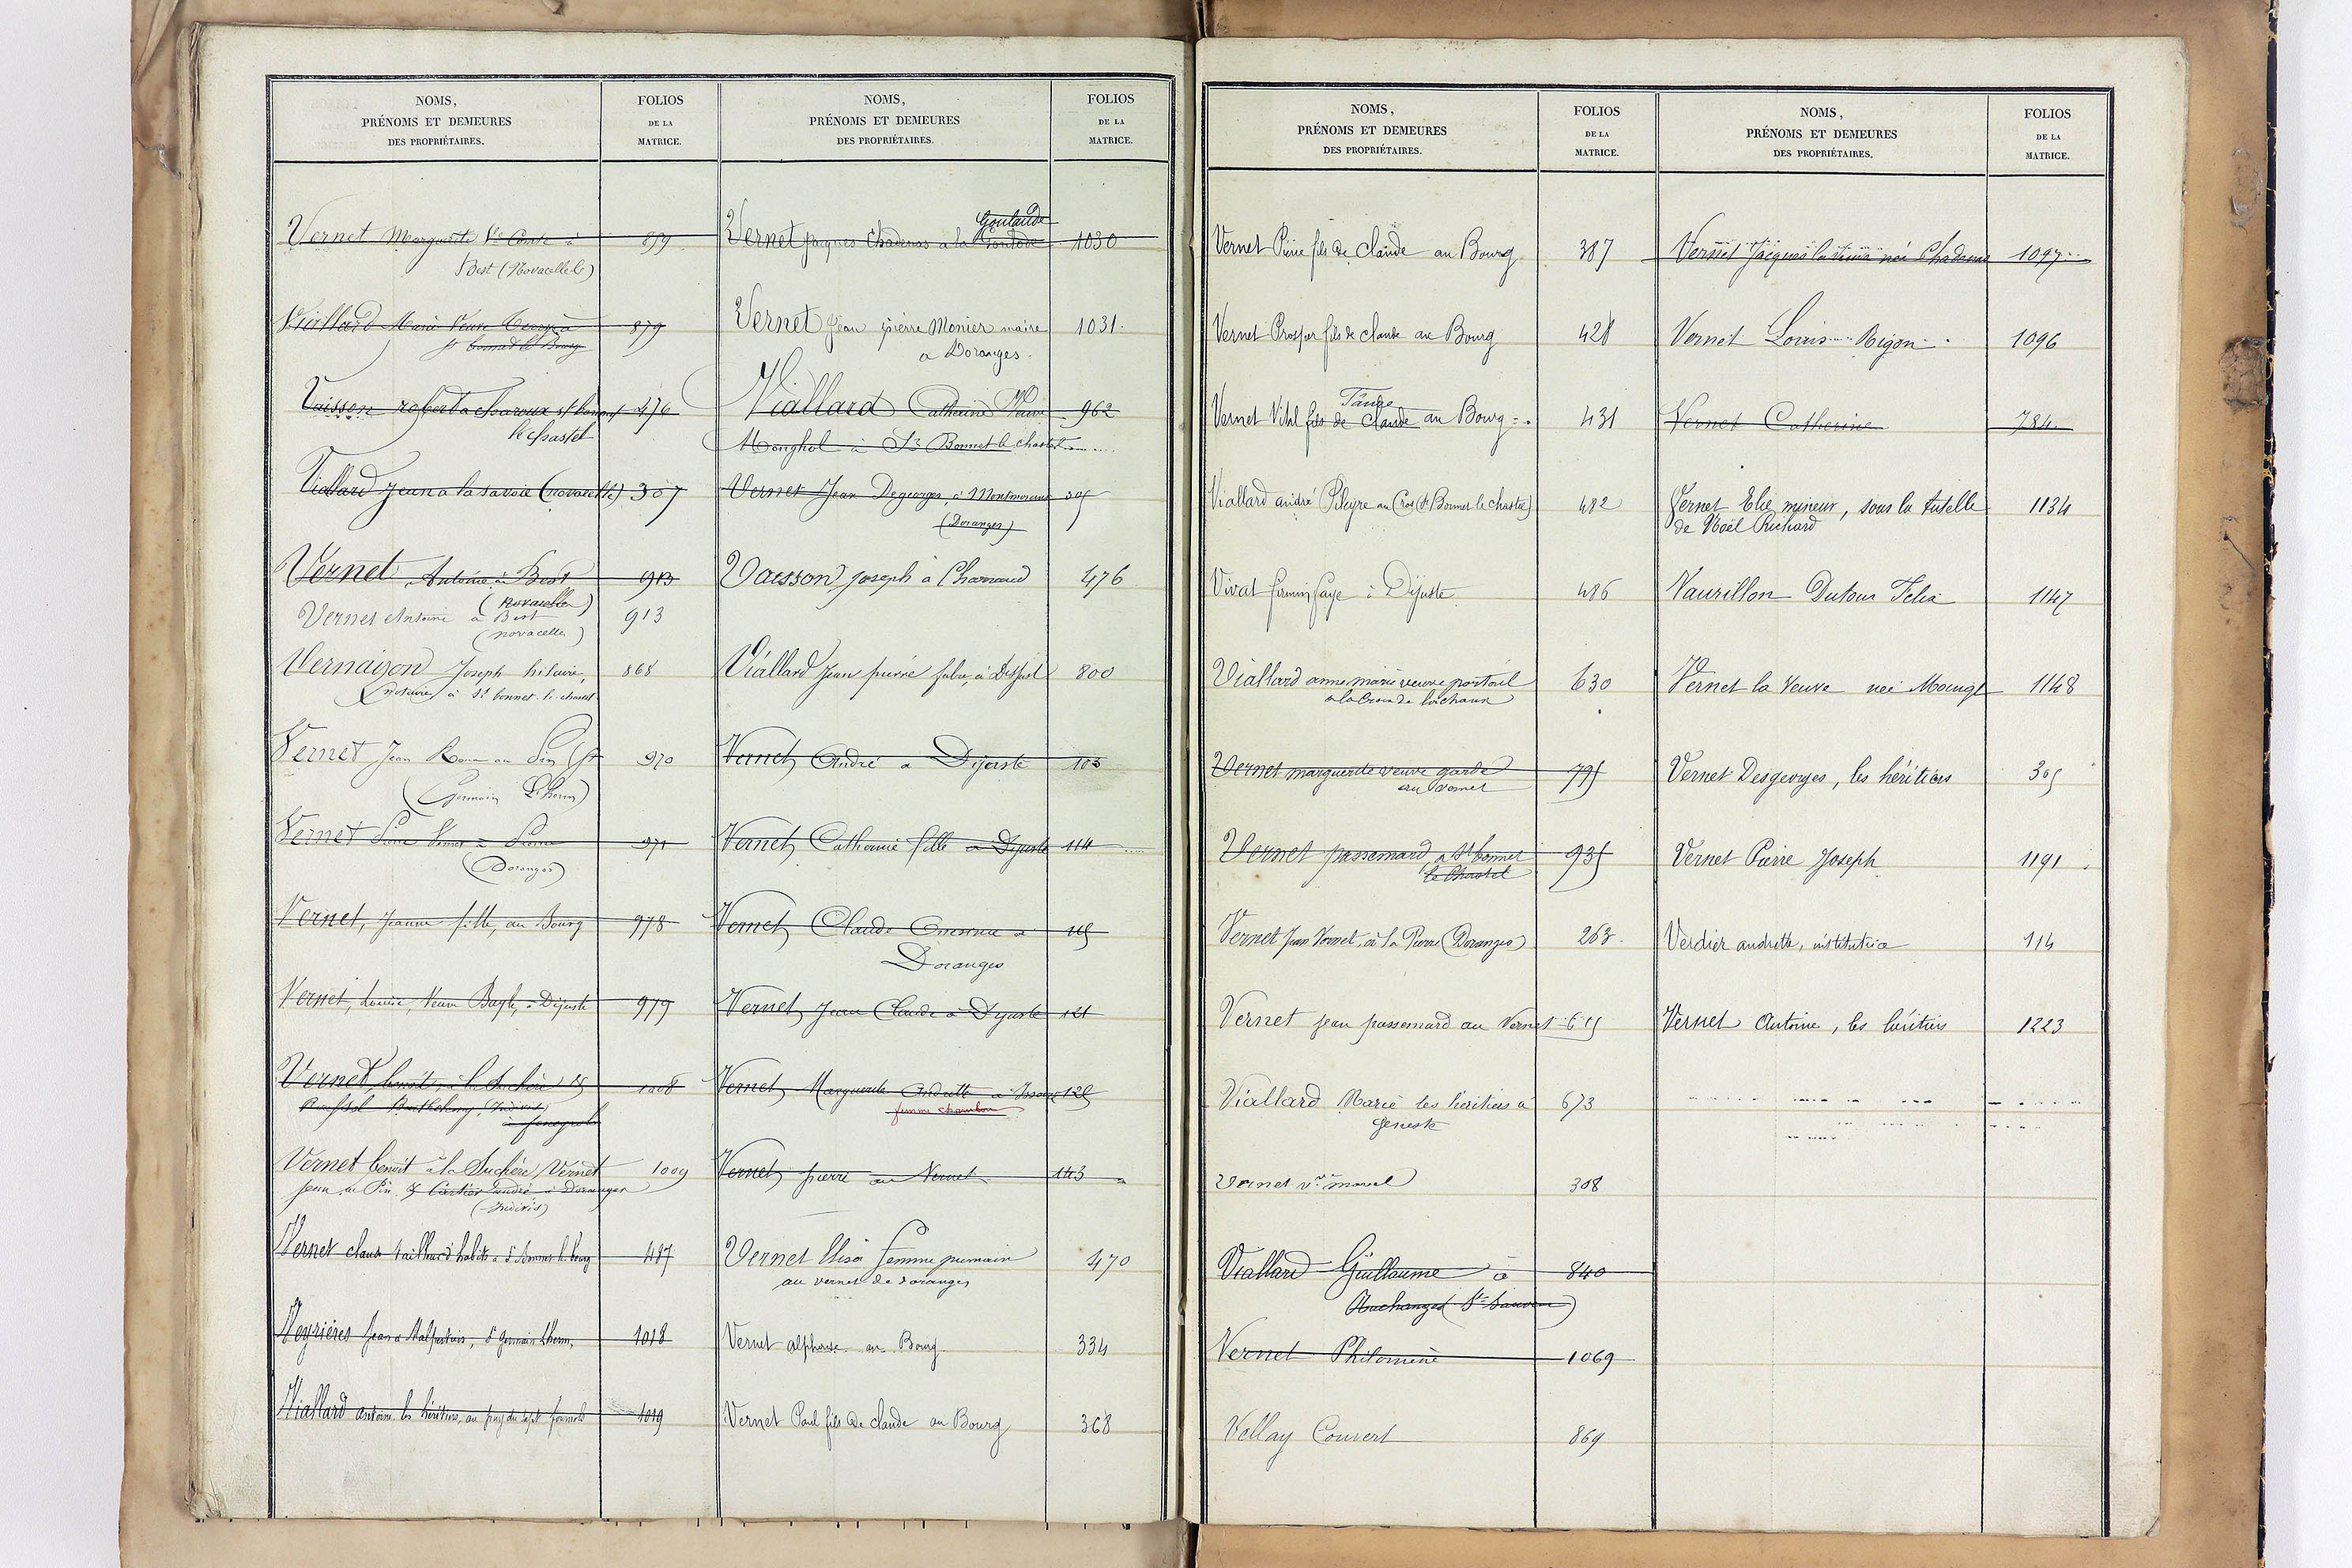 NOMS,
PRÉNOMS ET DEMEURES
DES PROPRIÉTAIRES.
FOLIOS
DE LA
MATRICE.
Vernet Marguerite Vve à 859
Best (Novacelle)
Viallard Marie Veuve à 879
Vaisson robert a charoux st bonnet 476
le chastel
Viallard Jean a la savoie (novacelle) 307
Vernet Antoine à Best 913
(Novacelle)
Vernet Antoine à Best 913
(novacelle)
Vernaison Joseph hilaire, 868
notaire à St bonnet le chastel
Vernet Jean au Pin (St 970
Germain L'herm)
Vernet Vernet à 971
(Doranges)
Vernet, Jeanne fille, au Bourg 978
Vernet, Louise, Veuve Bayle, à Dijuste 979
Vernet benoit, à la Suchère 1008
Barthelemy (indivis)
Vernet benoit à la Suchère, Vernet 1009
Jean au Pin & Cartier André à Doranges
(indivis)
Vernet claude tailleur d'habits à St Bonnet le bourg 487
Veyrières Jean à Malpertuis, St Germain L'herm, 1018
Viallard antoine les héritiers, au puy du sept 1019
NOMS,
PRÉNOMS ET DEMEURES
DES PROPRIÉTAIRES.
FOLIOS
DE LA
MATRICE.
Goulaude
Vernet Jacques Chadenas a la 1030
Vernet Jean pierre Monier maire 1031
a Doranges
Viallard Catherine Veuve 962
à St Bonnet le chastel
Vernet Jean Degeorges, à Montmoreau 305
(Doranges)
Vaisson Joseph à Charraud 476
Viallard Jean pierre à 800
Vernet, André a Dijuste 103
Vernet, Catherine fille a Dijuste 114
Vernet, Claude à 115
Doranges
Vernet, Jean Claude à Dijuste 121
Vernet, Marguerite Andrette à 125
femme chambon
Vernet, pierre au Vernet 143
Vernet Elisa femme pumain 470
au vernet de doranges
Vernet alphonse au Bourg 334
Vernet Paul fils de claude au Bourg 368
NOMS,
PRÉNOMS ET DEMEURES
DES PROPRIÉTAIRES.
FOLIOS
DE LA
MATRICE.
Vernet Pierre fils de Claude au Bourg 387
Vernet Prosper fils de claude au Bourg 428
Vernet Vital fils de Claude au Bourg 431
Viallard andré Pileyre au Cros (St Bonnet le chastel) 482
Vivat firmin faye à Dijuste 486
Viallard anne marie veuve portail 630
Vernet marguerite veuve garde 795
au vernet
Vernet passemard à St bonnet 935
le Chastel
Vernet Jean Vernet, à la Pierre (Doranges) 263
Vernet jean passemard au Vernet 615
Viallard Marie les héritiers à 673
geneste
Vernet Vve morel 308
Viallard Guillaume à 840
Vernet Philomène 1069
Vellay Couvert 869
NOMS,
PRÉNOMS ET DEMEURES
DES PROPRIÉTAIRES.
FOLIOS
DE LA
MATRICE.
Vernet Jacques la veuve née Chadenas 1097
Vernet Louis Rigon 1096
Vernet Catherine 784
Vernet Elie mineur, sous la tutelle 1134
de Noël Richard
Vaurillon Dutour Félix 1147
Vernet la Veuve née 1148
Vernet Desgeorges, les héritiers 305
Vernet Pierre Joseph 1191
Verdier andrette, institutrice 114
Vernet Antoine, les héritiers 1223